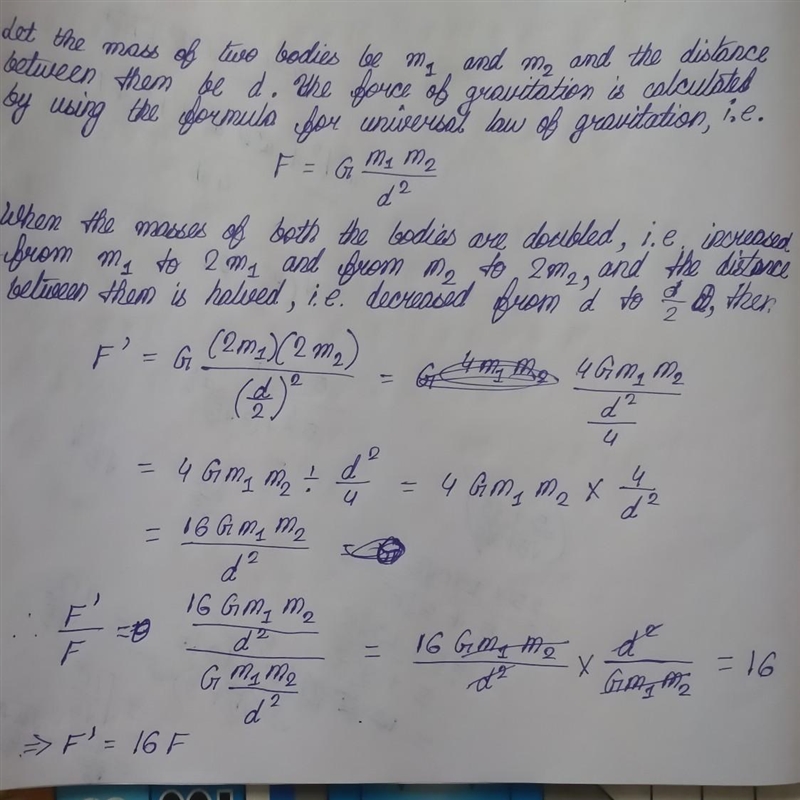 Let the mass of two bodies be m₁ and m₂ and the distance
between them be d. The force of gravitation is calculated
by using the formula for universal law of gravitation, i.e.
F = G (m₁ m₂)/d²
When the masses of both the bodies are doubled, i.e. increased
from m₁ to 2m₁ and from m₂ to 2m₂, and the distance
between them is halved, i.e. decreased from d to d/2, then
F' = G ((2m₁)(2m₂))/(d/2)² = (4Gm₁ m₂)/(d²/4)
= 4 Gm₁ m₂ ÷ d²/4 = 4 Gm₁ m₂ × 4/d²
= (16 Gm₁ m₂)/d²
∴ F'/F = ((16 Gm₁ m₂)/d²)/(G (m₁m₂)/d²) = (16 Gm₁ m₂)/d² × d²/(Gm₁ m₂) = 16
⇒ F' = 16 F